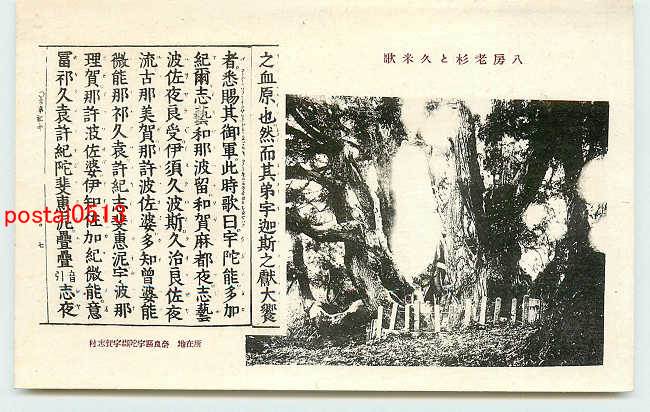 八房老杉と久米歌
之血原也然而其弟宇迦斯之獻大饗
者悉賜其御軍此時歌曰宇陀能多加
紀爾志藝和那波留和賀麻都夜志藝
波佐夜良受伊須久波斯久治良佐夜
流古那美賀那許波佐婆多知曾婆能
微能那祁久袁許紀志斐惠泥宇波那
理賀那許波佐婆伊知佐加紀微能意
冨祁久袁許紀陀斐惠泥疊疊音引志夜
所在地 奈良縣宇陀郡宇賀志村
postal0513